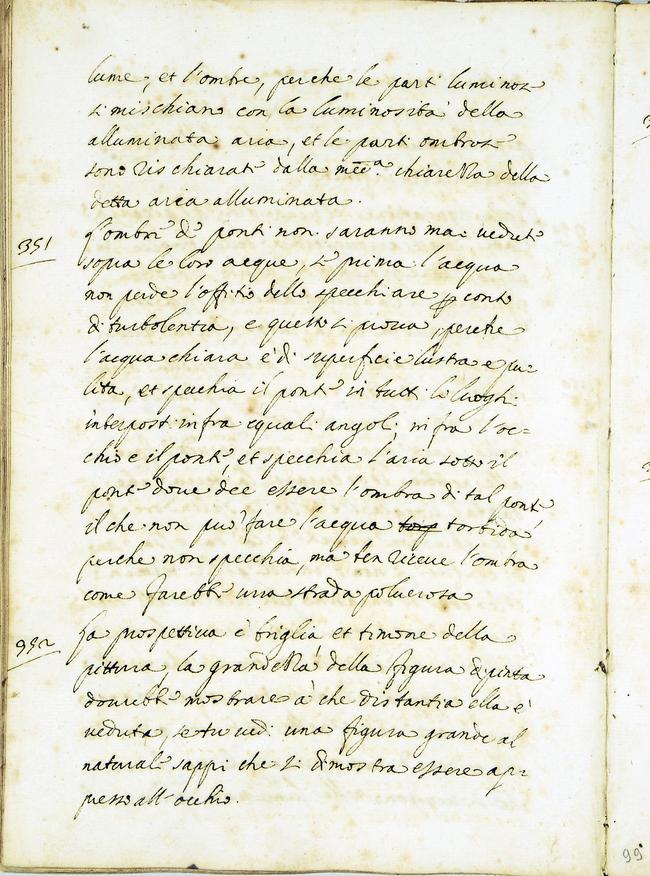 lume, et l'ombre, perche le parti luminose
si mischiano con la luminosità della
alluminata aria, et le parti ombrose
sono rischiarate dalla med.ª chiarezza della
detta aria alluminata.
351
L'ombre de ponti non saranno mai vedute
sopra le loro acque, se prima l'acqua
non perde l'offitio dello specchiare p conto
di turbolentia, e questo si prova, perche
l'acqua chiara è di superficie lustra e pu-
lita, et specchia il ponte in tutti li luoghi
interposti infra equali angoli, infra l'oc-
chio e il ponte, et specchia l'aria sotto il
ponte dove dee essere l'ombra di tal ponte
il che non può fare l'acqua torbida
perche non specchia, ma ben riceve l'ombra
come farebbe una strada polverosa
952
La prospettiva è briglia et timone della
pittura la grandezza della figura dipinta
dovrebbe mostrare à che distantia ella è
veduta, se tu vedi una figura grande al
naturale sappi che si dimostra essere ap-
presso all'occhio.
99